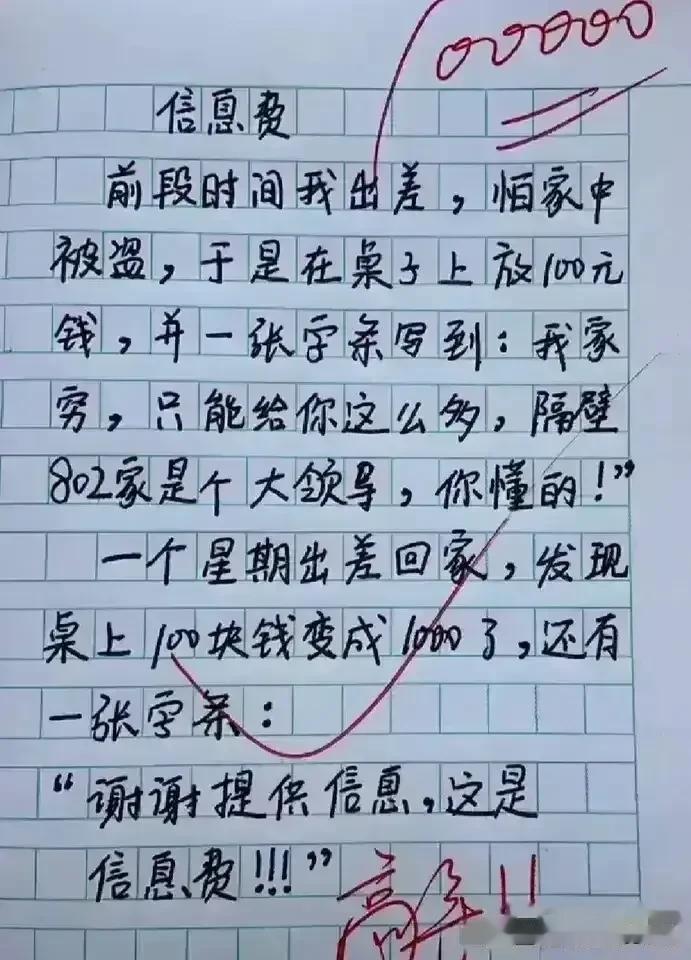 信息费
前段时间我出差，怕家中
被盗，于是在桌子上放100元
钱，并一张字条写到：我家
穷，只能给你这么多，隔壁
802家是个大领导，你懂的！”
一个星期出差回家，发现
桌上100块钱变成1000了，还有
一张字条：
“谢谢提供信息，这是
信息费!!!”
高
!!